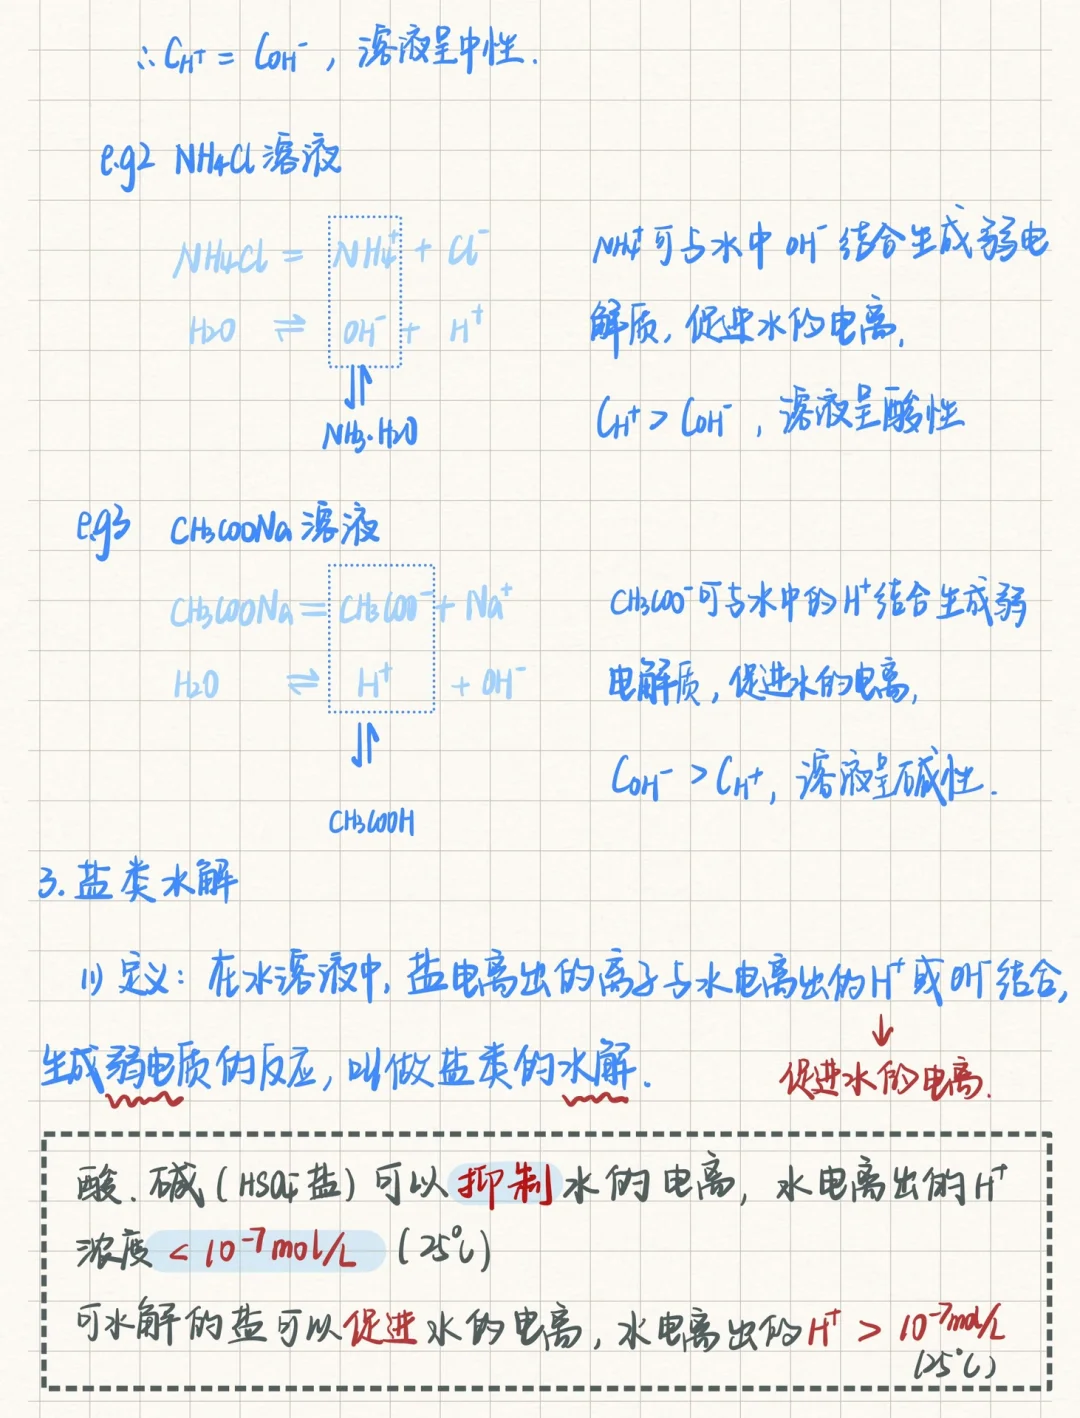 ∴C_H⁺ = C_OH⁻，溶液呈中性.
e.g2 NH₄Cl溶液
NH₄Cl = NH₄⁺ + Cl⁻
H₂O ⇌ OH⁻ + H⁺
⇌
NH₃·H₂O
NH₄⁺可与水中OH⁻结合生成弱电
解质，促进水的电离，
C_H⁺ > C_OH⁻，溶液呈酸性
e.g3 CH₃COONa溶液
CH₃COONa = CH₃COO⁻ + Na⁺
H₂O ⇌ H⁺ + OH⁻
⇌
CH₃COOH
CH₃COO⁻可与水中的H⁺结合生成弱
电解质，促进水的电离，
C_OH⁻ > C_H⁺，溶液呈碱性.
3.盐类水解
(1) 定义：在水溶液中，盐电离出的离子与水电离出的H⁺或OH⁻结合，
↓
生成弱电质的反应，叫做盐类的水解.
促进水的电离.
酸、碱（HSO₄⁻盐）可以抑制水的电离，水电离出的H⁺
浓度 < 10⁻⁷mol/L （25℃）
可水解的盐可以促进水的电离，水电离出的H⁺ > 10⁻⁷mol/L
（25℃）